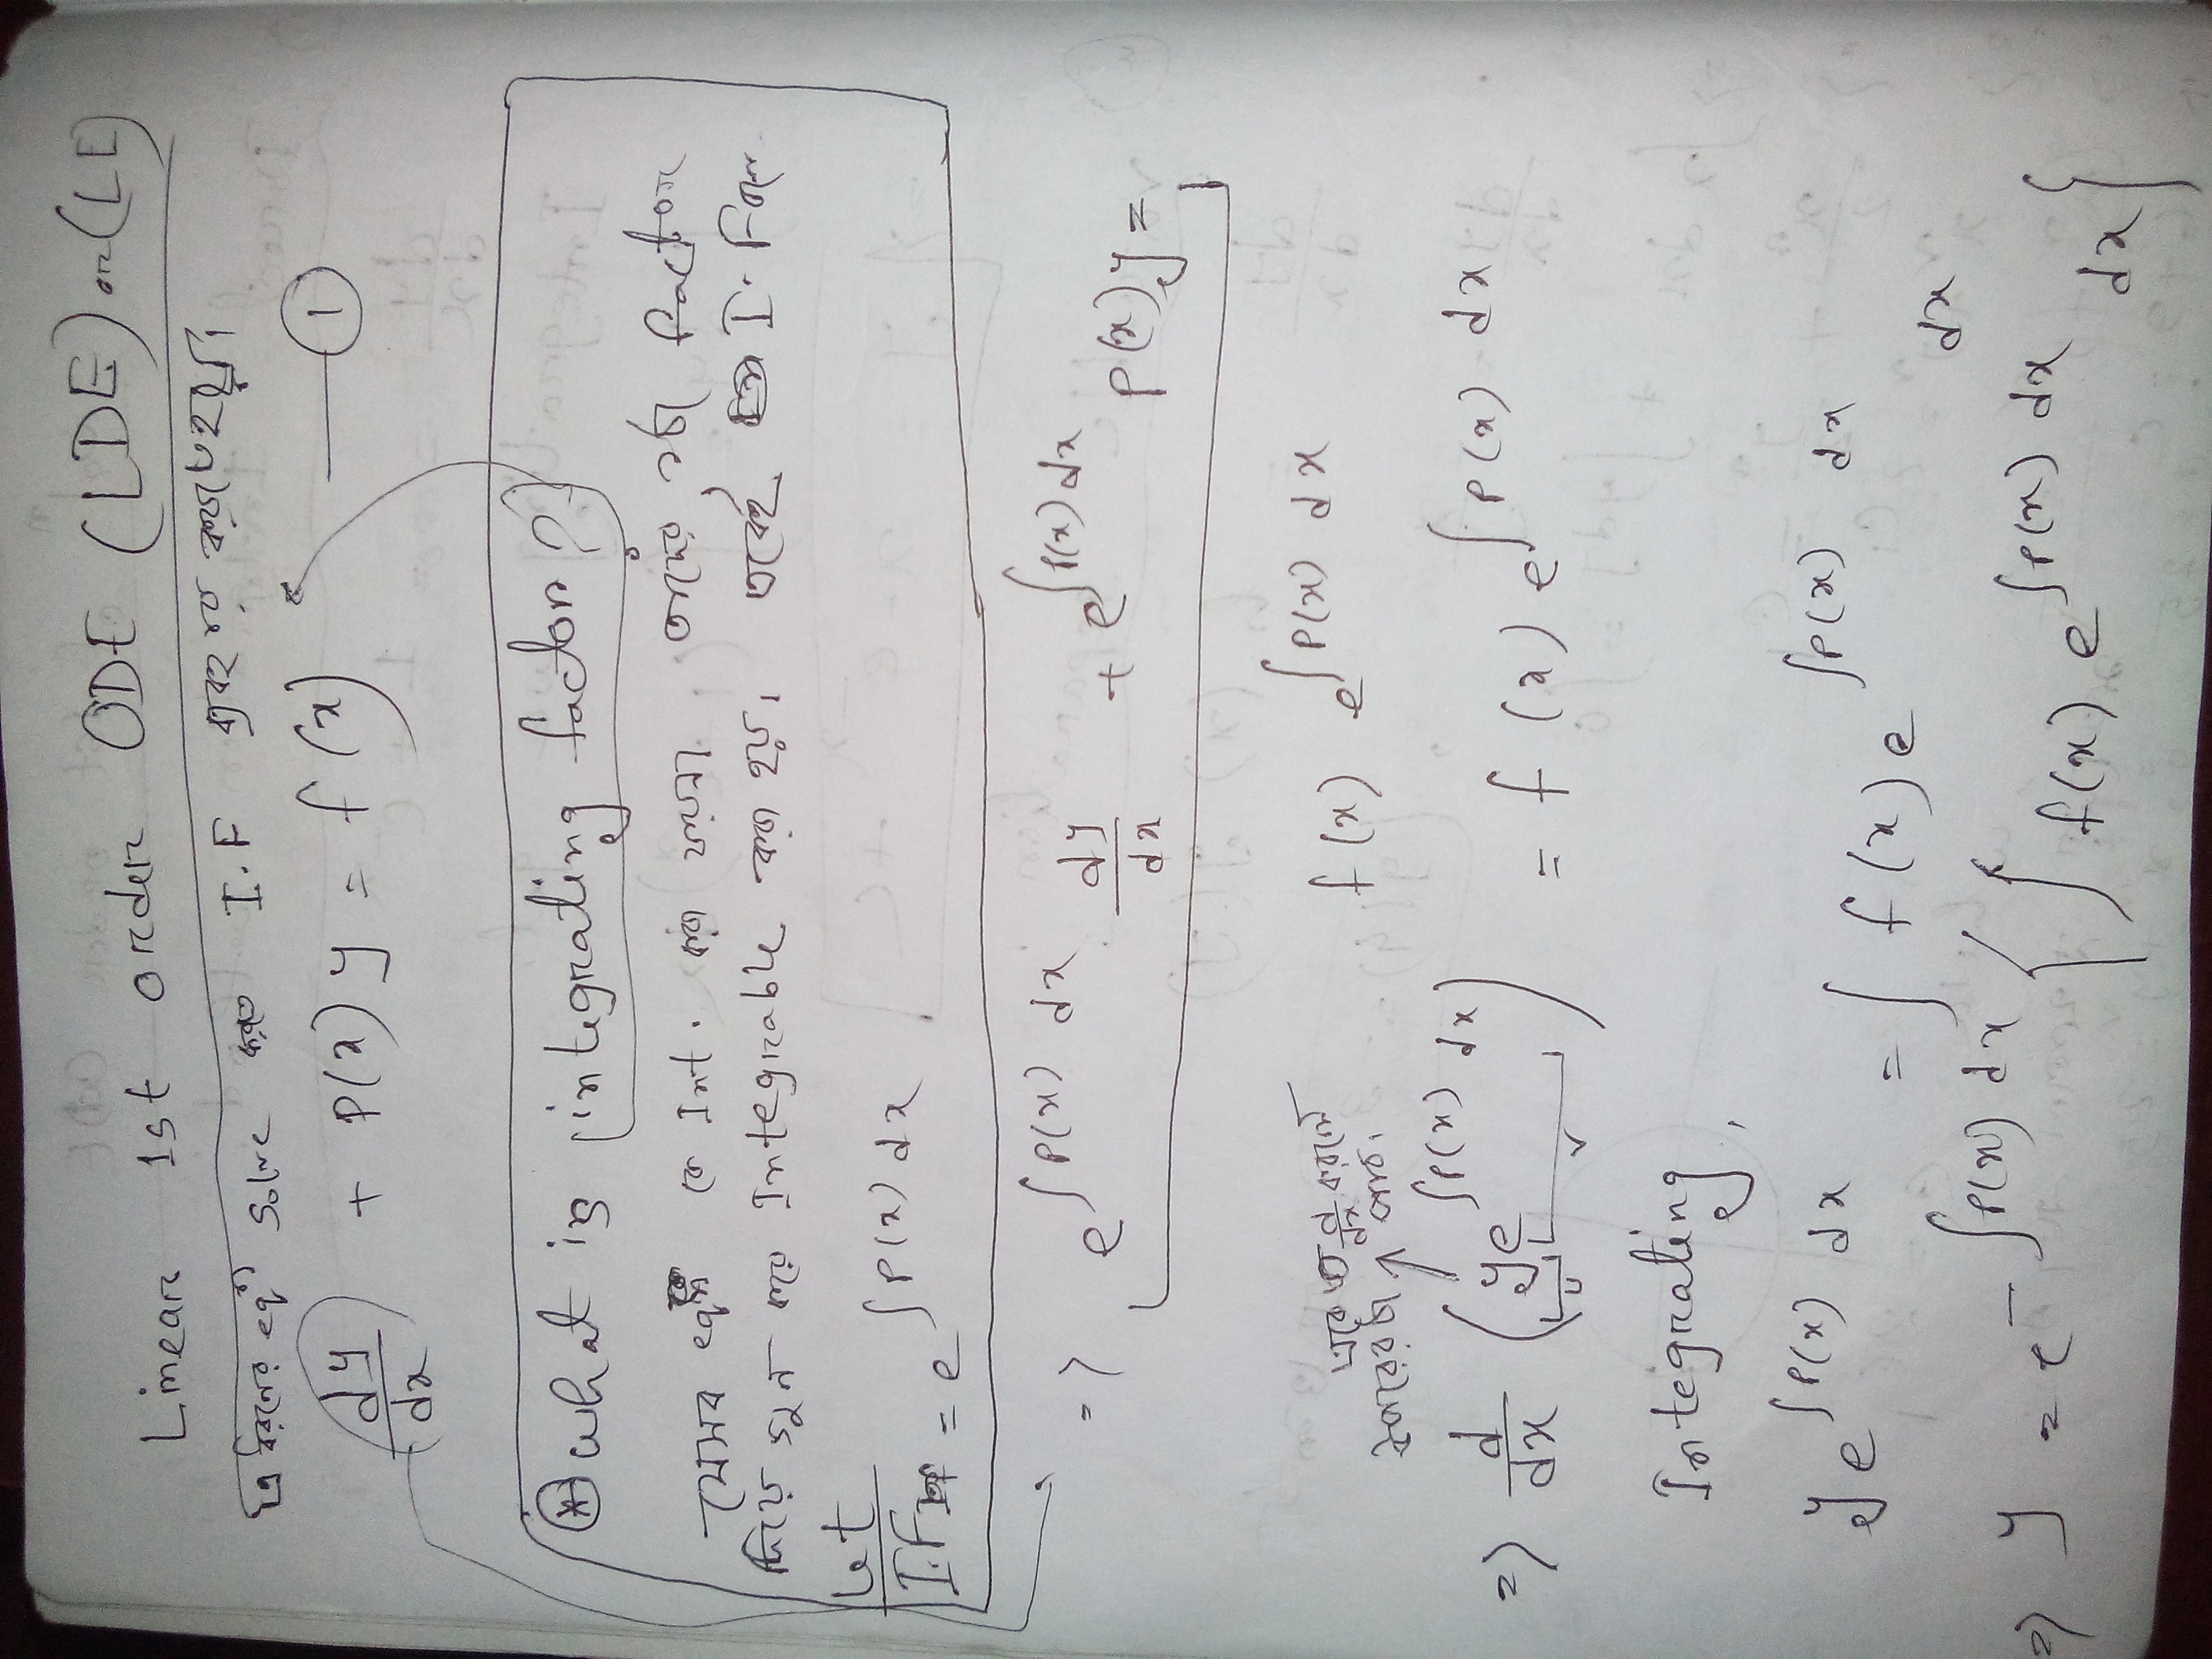 Linear 1st order ODE (LDE) or (LE)
solve করতে I.F
dy/dx + P(x) y = f(x) —— ①
⊛ what is integrating factor?
যেসব eqn কে Int. করা যায়না। তাদের factor
দিয়ে গুন করে Integrable করা হয়। তাকেই I.F বলে
Let
I.F = e^∫P(x) dx
=> e^∫P(x) dx dy/dx + e^∫P(x) dx P(x) y =
f(x) e^∫P(x) dx
=> d/dx (y e^∫P(x) dx) = f(x) e^∫P(x) dx
Integrating,
y e^∫P(x) dx = ∫ f(x) e^∫P(x) dx dx
=> y = e^-∫P(x) dx { ∫ f(x) e^∫P(x) dx dx }